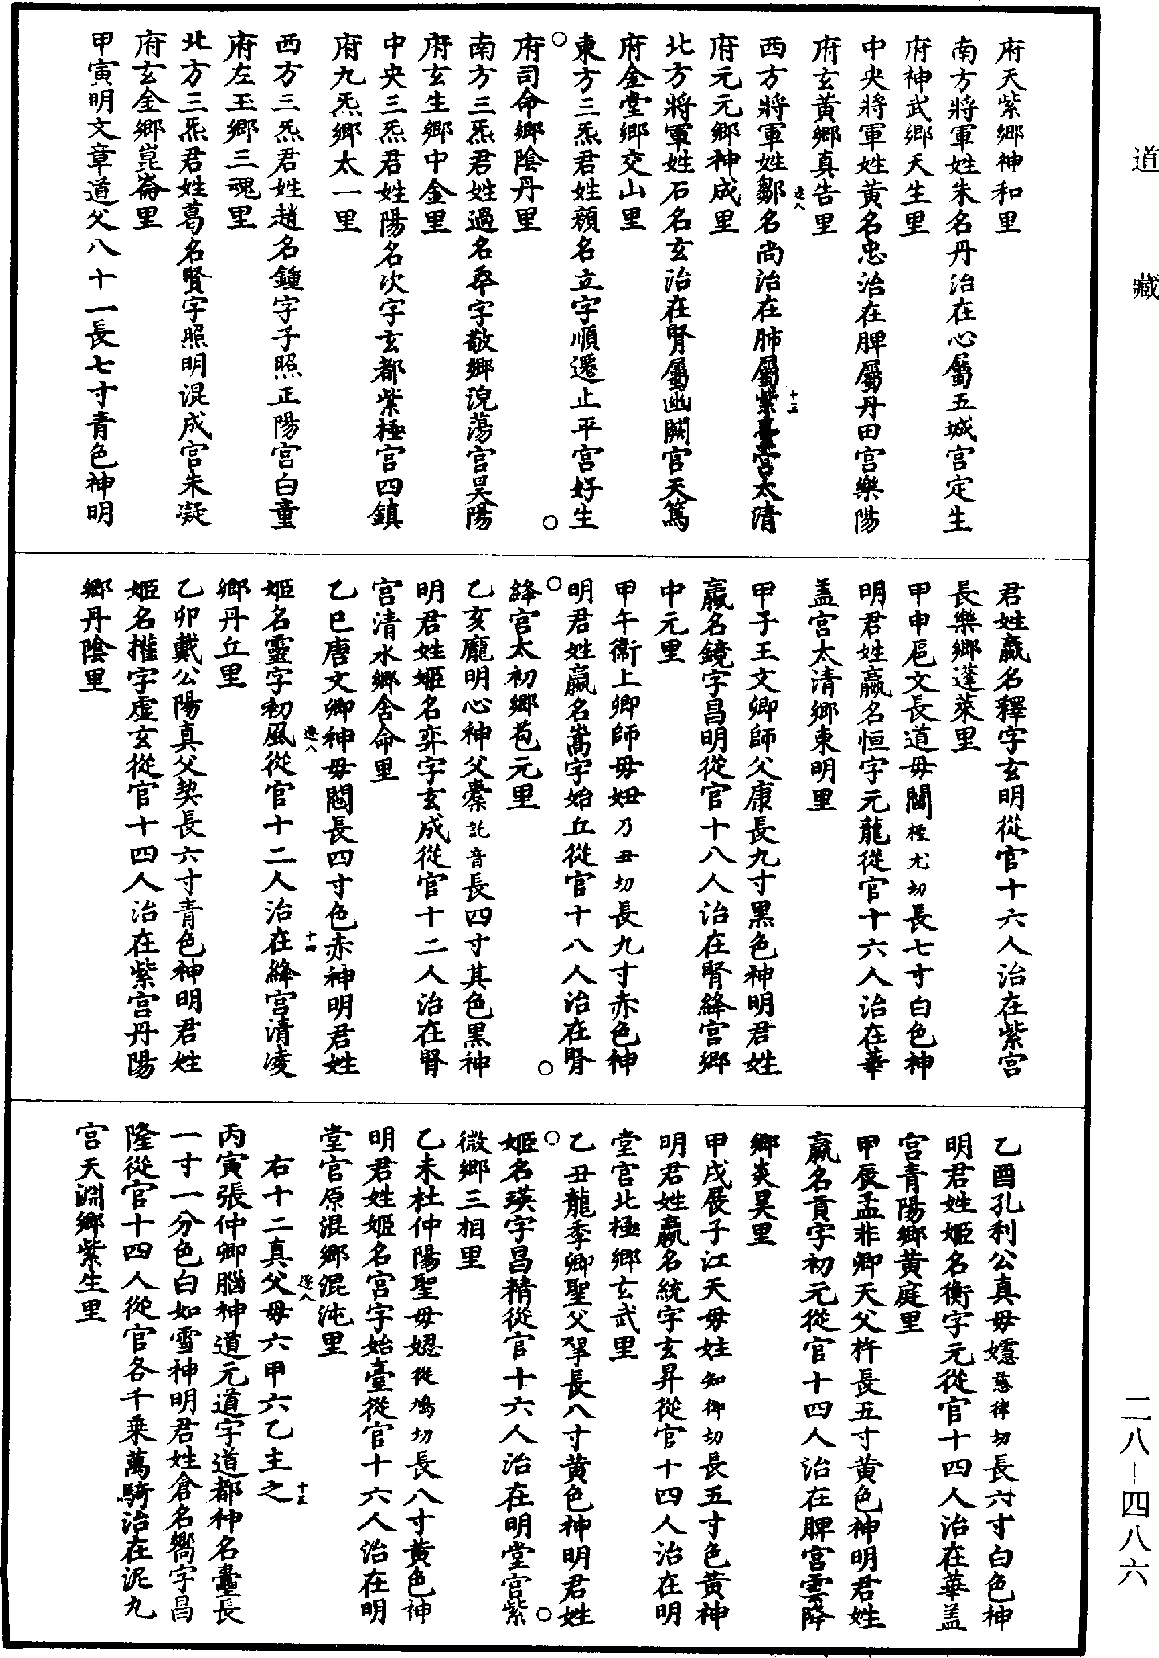 道藏
府天紫鄉神和里
南方將軍姓朱名丹治在心屬五城宮定生
府神武鄉天生里
中央將軍姓黃名忠治在脾屬丹田宮樂陽
府玄黃鄉真告里
西方將軍姓鄒名尚治在肺屬紫臺宮太清
府元元鄉神成里
北方將軍姓石名玄治在腎屬幽闕宮天篤
府金堂鄉交山里
東方三炁君姓顏名立字順遷止平宮好生
府司命鄉陰丹里
南方三炁君姓過名奉字敬鄉浼蕩宮昊陽
府玄生鄉中金里
中央三炁君姓陽名次字玄都紫極宮四鎮
府九炁鄉太一里
西方三炁君姓趙名鍾字子照正陽宮白童
府左玉鄉三魂里
北方三炁君姓葛名賢字照明混成宮朱凝
府玄金鄉崑崙里
甲寅明文章道父八十一長七寸青色神明
君姓嬴名釋字玄明從官十六人治在紫宮
長樂鄉蓬萊里
甲申扈文長道母閽極尤切長七寸白色神
明君姓嬴名恒字元龍從官十六人治在華
盖宮太清鄉東明里
甲子王文卿師父康長九寸黑色神明君姓
嬴名鏡字昌明從官十八人治在腎絳宮鄉
中元里
甲午衞上卿師母妞乃丑切長九寸赤色神
明君姓嬴名嵩字始丘從官十八人治在腎
絳宮太初鄉苞元里
乙亥龐明心神父橐託音長四寸其色黑神
明君姓姬名弈字玄成從官十二人治在腎
宮清水鄉舍命里
乙巳唐文卿神母閻長四寸色赤神明君姓
姬名靈字初風從官十二人治在絳宮清凌
鄉丹丘里
乙卯戴公陽真父契長六寸青色神明君姓
姬名摧字虛玄從官十四人治在紫宮丹陽
鄉丹陰里
乙酉孔利公真母嬺慈律切長六寸白色神
明君姓姬名衡字元從官十四人治在華盖
宮青陽鄉黃庭里
甲辰孟非卿天父杵長五寸黃色神明君姓
嬴名貢字初元從官十四人治在脾宮雲降
鄉炎昊里
甲戌展子江天母妵知御切長五寸色黃神
明君姓嬴名統字玄昇從官十四人治在明
堂宮北極鄉玄武里
乙丑龍季卿聖父犂長八寸黃色神明君姓
姬名瑛字昌精從官十六人治在明堂宮紫
微鄉三相里
乙未杜仲陽聖母媤從鳩切長八寸黃色神
明君姓姬名宮字始臺從官十六人治在明
堂宮原混鄉混沌里
右十二真父母六甲六乙主之
丙寅張仲卿腦神道元道字道都神名臺長
一寸一分色白如雪神明君姓倉名嚮字昌
隆從官十四人從官各千乘萬騎治在泥丸
宮天淵鄉紫生里
二八-四八六